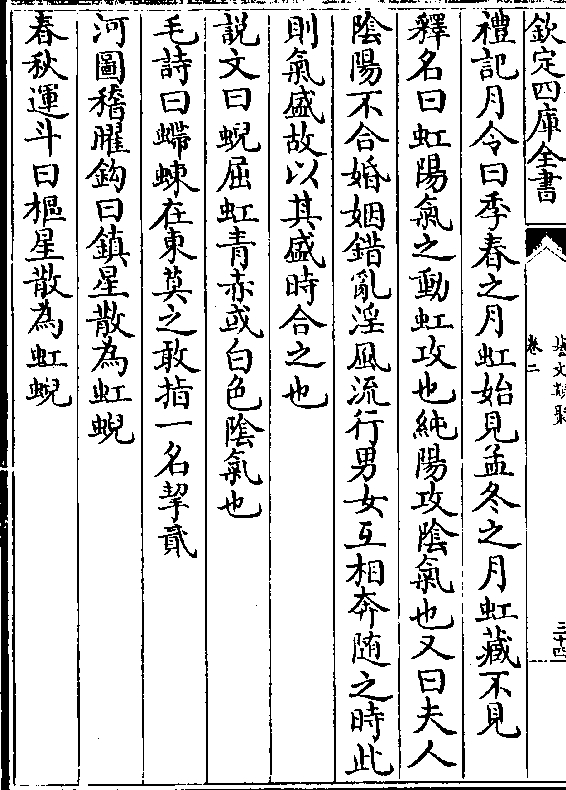 欽定四庫全書
藝文類聚
卷二
三十四
禮記月令曰季春之月虹始見孟冬之月虹藏不見
釋名曰虹陽氣之動虹攻也純陽攻陰氣也又曰夫人
陰陽不合婚姻錯亂淫風流行男女互相奔随之時此
則氣盛故以其盛時合之也
説文曰蜺屈虹青赤或白色陰氣也
毛詩曰蝃蝀在東莫之敢指一名挈貳
河圖稽曜鈎曰鎮星散為虹蜺
春秋運斗曰樞星散為虹蜺